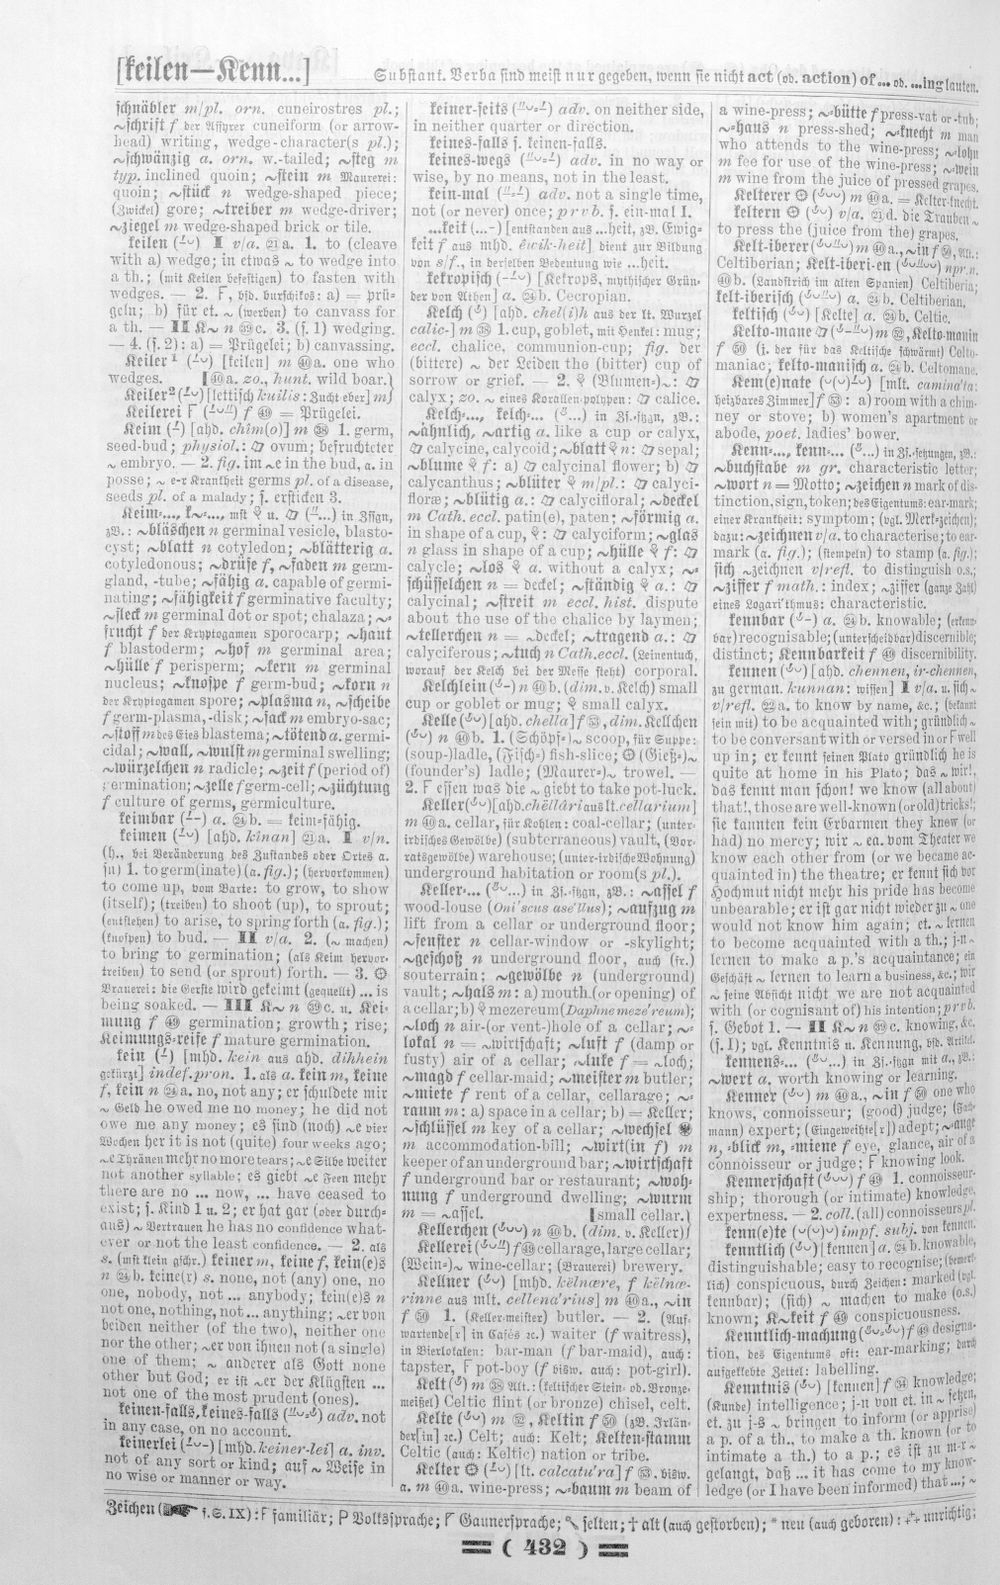 [keilen—Kenn...]
Substant. Verba sind meist nur gegeben, wenn sie nicht act (od. action) of... od. ...ing lauten.
schnäbler m/pl. orn. cuneirostres pl.;
~schrift f der Assyrer cuneiform (or arrow-
head) writing, wedge-character(s pl.);
~schwänzig a. orn. w.-tailed; ~steg m
typ. inclined quoin; ~stein m Maurerei:
quoin; ~stück n wedge-shaped piece;
(Zwickel) gore; ~treiber m wedge-driver;
~ziegel m wedge-shaped brick or tile.
keilen v/a. 21 a. 1. to (cleave
with a) wedge; in etwas ~ to wedge into
a th.; (mit Keilen befestigen) to fasten with
wedges. — 2. F, bsd. burschikos: a) = prü-
geln; b) für et. ~ (werben) to canvass for
a th. — II K~ n 39 c. 3. (s. 1) wedging.
— 4. (s. 2): a) = Prügelei; b) canvassing.
Keiler¹ [keilen] m 40 a. one who
wedges. [40 a. zo., hunt. wild boar.]
Keiler² [lettisch kuilis: Zuchteber] m
Keilerei F f 49 = Prügelei.
Keim [ahd. chîm(o)] m 38 1. germ,
seed-bud; physiol.: ovum; befruchteter
~ embryo. — 2. fig. im ~e in the bud, a. in
posse; ~ e-r Krankheit germs pl. of a disease,
seeds pl. of a malady; s. ersticken 3.
Keim=..., k~=..., mst u. in Zssgn,
zB.: ~bläschen n germinal vesicle, blasto-
cyst; ~blatt n cotyledon; ~blätterig a.
cotyledonous; ~drüse f, ~faden m germ-
gland, -tube; ~fähig a. capable of germi-
nating; ~fähigkeit f germinative faculty;
~fleck m germinal dot or spot; chalaza; ~=
frucht f der Kryptogamen sporocarp; ~haut
f blastoderm; ~hof m germinal area;
~hülle f perisperm; ~kern m germinal
nucleus; ~knospe f germ-bud; ~korn n
der Kryptogamen spore; ~plasma n, ~scheibe
f germ-plasma, -disk; ~sack m embryo-sac;
~stoff m des Eies blastema; ~tötend a. germi-
cidal; ~wall, ~wulst m germinal swelling;
~würzelchen n radicle; ~zeit f (period of)
germination; ~zelle f germ-cell; ~züchtung
f culture of germs, germiculture.
keimbar a. 24 b. = keim=fähig.
keimen [ahd. kînan] 21 a. I v/n.
(h., bei Veränderung des Zustandes oder Ortes a.
sn) 1. to germ(inate) (a. fig.); (hervorkommen)
to come up, vom Barte: to grow, to show
(itself); (treiben) to shoot (up), to sprout;
(entstehen) to arise, to spring forth (a. fig.);
(knospen) to bud. — II v/a. 2. (~ machen)
to bring to germination; (als Keim hervor-
treiben) to send (or sprout) forth. — 3.
Brauerei: die Gerste wird gekeimt (gequellt) ... is
being soaked. — III K~ n 39 c. u. Kei-
mung f 49 germination; growth; rise;
Keimungs=reife f mature germination.
kein [mhd. kein aus ahd. dihhein
gekürzt] indef. pron. 1. als a. kein m, keine
f, kein n 24 a. no, not any; er schuldete mir
~ Geld he owed me no money; he did not
owe me any money; es sind (noch) ~e vier
Wochen her it is not (quite) four weeks ago;
~e Thränen mehr no more tears; ~e Silbe weiter
not another syllable; es giebt ~e Feen mehr
there are no ... now, ... have ceased to
exist; s. Kind 1 u. 2; er hat gar (oder durch-
aus) ~ Vertrauen he has no confidence what-
ever or not the least confidence. — 2. als
s. (mst klein gschr.) keiner m, keine f, kein(e)s
n 24 b. keine(r) s. none, not (any) one, no
one, nobody, not ... anybody; kein(e)s n
not one, nothing, not ... anything; ~er von
beiden neither (of the two), neither one
nor the other; ~er von ihnen not (a single)
one of them; ~ anderer als Gott none
other but God; er ist ~er der Klügsten ...
not one of the most prudent (ones).
keinen=falls, keines=falls adv. not
in any case, on no account.
keinerlei [mhd. keiner-lei] a. inv.
not of any sort or kind; auf ~ Weise in
no wise or manner or way.
keiner=seits adv. on neither side,
in neither quarter or direction.
keines=falls s. keinen=falls.
keines=wegs adv. in no way or
wise, by no means, not in the least.
kein=mal adv. not a single time,
not (or never) once; prvb. s. ein=mal I.
...keit (...–) [entstanden aus ...heit, zB. Ewig=
keit f aus mhd. êwik-heit] dient zur Bildung
von s/f., in derselben Bedeutung wie ...heit.
kekropisch [Kekrops, mythischer Grün-
der von Athen] a. 24 b. Cecropian.
Kelch [ahd. chel(i)h aus der lt. Wurzel
calic-] m 38 1. cup, goblet, mit Henkel: mug;
eccl. chalice, communion-cup; fig. der
(bittere) ~ der Leiden the (bitter) cup of
sorrow or grief. — 2. (Blumen=)~:
calyx; zo. ~ eines Korallen-polypen: calice.
Kelch=..., kelch=... in Zs.=ssgn, zB.:
~ähnlich, ~artig a. like a cup or calyx,
calycine, calycoid; ~blatt n: sepal;
~blume f: a) calycinal flower; b)
calycanthus; ~blüter m/pl.: calyci-
floræ; ~blütig a.: calycifloral; ~deckel
m Cath. eccl. patin(e), paten; ~förmig a.
in shape of a cup, : calyciform; ~glas
n glass in shape of a cup; ~hülle f:
calycle; ~los a. without a calyx; ~=
schüsselchen n = deckel; ~ständig a.:
calycinal; ~streit m eccl. hist. dispute
about the use of the chalice by laymen;
~tellerchen n = ~deckel; ~tragend a.:
calyciferous; ~tuch n Cath. eccl. (Leinentuch,
worauf der Kelch bei der Messe steht) corporal.
Kelchlein n 40 b. (dim. v. Kelch) small
cup or goblet or mug; small calyx.
Kelle [ahd. chella] f 53, dim. Kellchen
n 40 b. 1. (Schöpf=)~ scoop, für Suppe:
(soup-)ladle, (Fisch=) fish-slice; (Gieß=)~
(founder's) ladle; (Maurer=)~ trowel. —
2. F essen was die ~ giebt to take pot-luck.
Keller [ahd. chëllâri aus lt. cellarium]
m 40 a. cellar, für Kohlen: coal-cellar; (unter-
irdisches Gewölbe) (subterraneous) vault, (Vor-
ratsgewölbe) warehouse; (unter-irdische Wohnung)
underground habitation or room(s pl.).
Keller=... in Zs.=ssgn, zB.: ~assel f
wood-louse (Oni'scus ase'llus); ~aufzug m
lift from a cellar or underground floor;
~fenster n cellar-window or -skylight;
~geschoß n underground floor, auch (fr.)
souterrain; ~gewölbe n (underground)
vault; ~hals m: a) mouth (or opening) of
a cellar; b) mezereum (Daphne meze'reum);
~loch n air-(or vent-)hole of a cellar; ~=
lokal n = ~wirtschaft; ~luft f (damp or
fusty) air of a cellar; ~luke f = ~loch;
~magd f cellar-maid; ~meister m butler;
~miete f rent of a cellar, cellarage; ~=
raum m: a) space in a cellar; b) = Keller;
~schlüssel m key of a cellar; ~wechsel
m accommodation-bill; ~wirt(in f) m
keeper of an underground bar; ~wirtschaft
f underground bar or restaurant; ~woh=
nung f underground dwelling; ~wurm
m = ~assel. [small cellar.]
Kellerchen n 40 b. (dim. v. Keller)
Kellerei f 49 cellarage, large cellar;
(Wein=)~ wine-cellar; (Brauerei) brewery.
Kellner [mhd. këlnære, f këlnæ-
rinne aus mlt. cellena'rius] m 40 a., ~in
f 50 1. (Keller-meister) butler. — 2. (Auf-
wartende[r] in Cafés 2c.) waiter (f waitress),
in Bierlokalen: bar-man (f bar-maid), auch:
tapster, F pot-boy (f bisw. auch: pot-girl).
Kelt m 38 Alt.: (keltischer Stein= od. Bronze-
meißel) Celtic flint (or bronze) chisel, celt.
Kelte m 52, Keltin f 50 (zB. Irlän-
der[in] 2c.) Celt; auch: Kelt; Kelten=stamm
Celtic (auch: Keltic) nation or tribe.
Kelter [lt. calcatu'ra] f 53, bisw.
a. m 40 a. wine-press; ~=baum m beam of
a wine-press; ~=bütte f press-vat or -tub;
~=haus n press-shed; ~=knecht m man
who attends to the wine-press; ~=lohn
m fee for use of the wine-press; ~=wein
m wine from the juice of pressed grapes.
Kelterer m 40 a. = Kelter=knecht.
keltern v/a. 21 d. die Trauben ~
to press the (juice from the) grapes.
Kelt=iberer m 40 a., ~in f 50, Alt.:
Celtiberian; Kelt=iberi=en npr. n.
40 b. (Landstrich im alten Spanien) Celtiberia;
kelt=iberisch a. 24 b. Celtiberian.
keltisch [Kelte] a. 24 b. Celtic.
Kelto=mane m 52, Kelto=manin
f 50 (j. der für das Keltische schwärmt) Celto-
maniac; kelto=manisch a. 24 b. Celtomane.
Kem(e)nate [mlt. camina'ta:
heizbares Zimmer] f 53: a) room with a chim-
ney or stove; b) women's apartment or
abode, poet. ladies' bower.
Kenn=..., kenn=... in Zs.=setzungen, zB.:
~buchstabe m gr. characteristic letter;
~wort n = Motto; ~zeichen n mark of dis-
tinction, sign, token; des Eigentums: ear-mark;
einer Krankheit: symptom; (vgl. Merk=zeichen);
dazu: ~zeichnen v/a. to characterise; to ear-
mark (a. fig.); (stempeln) to stamp (a. fig.);
sich ~zeichnen v/refl. to distinguish o.s.;
~ziffer f math.: index; ~ziffer (ganze Zahl)
eines Logari'thmus: characteristic.
kennbar a. 24 b. knowable; (erkenn-
bar) recognisable; (unterscheidbar) discernible;
distinct; Kennbarkeit f 49 discernibility.
kennen [ahd. chennen, ir-chennen,
zu german. kunnan: wissen] I v/a. u. sich ~
v/refl. 22 a. to know by name, &c.; (bekannt
sein mit) to be acquainted with; gründlich ~
to be conversant with or versed in or F well
up in; er kennt seinen Plato gründlich he is
quite at home in his Plato; das ~ wir!,
das kennt man schon! we know (all about)
that!, those are well-known (or old) tricks!;
sie kannten kein Erbarmen they knew (or
had) no mercy; wir ~ ea. vom Theater we
know each other from (or we became ac-
quainted in) the theatre; er kennt sich vor
Hochmut nicht mehr his pride has become
unbearable; er ist gar nicht wieder zu ~ one
would not know him again; et. ~ lernen
to become acquainted with a th.; j-n ~
lernen to make a p.'s acquaintance; ein
Geschäft ~ lernen to learn a business, &c.; wir
~ seine Absicht nicht we are not acquainted
with (or cognisant of) his intention; prvb.
s. Gebot 1. — II K~ n 39 c. knowing, &c.
(s. I); vgl. Kenntnis u. Kennung, bsd. Artikel.
kennens=... in Zs.=ssgn mit a., zB.:
~wert a. worth knowing or learning.
Kenner m 40 a., ~in f 50 one who
knows, connoisseur; (good) judge; (Fach-
mann) expert; (Eingeweihte[r]) adept; ~=auge
n, =blick m, =miene f eye, glance, air of a
connoisseur or judge; F knowing look.
Kennerschaft f 49 1. connoisseur-
ship; thorough (or intimate) knowledge,
expertness. — 2. coll. (all) connoisseurs pl.
kenn(e)te impf. subj. von kennen.
kenntlich [kennen] a. 24 b. knowable,
distinguishable; easy to recognise; (bemerk-
lich) conspicuous, durch Zeichen: marked (vgl.
kennbar); (sich) ~ machen to make (o.s.)
known; K~keit f 49 conspicuousness.
Kenntlich=machung f 49 designa-
tion, des Eigentums oft: ear-marking; durch
aufgeklebte Zettel: labelling.
Kenntnis [kennen] f knowledge;
(Kunde) intelligence; j-n von et. in ~ setzen,
et. zu j-s ~ bringen to inform (or apprise)
a p. of a th., to make a th. known (or to
intimate a th.) to a p.; es ist zu m-r ~
gelangt, daß ... it has come to my know-
ledge (or I have been informed) that ...; ~
Zeichen ( s. S. IX): F familiär; P Volkssprache; Γ Gaunersprache; selten; † alt (auch gestorben); * neu (auch geboren): unrichtig;
( 432 )